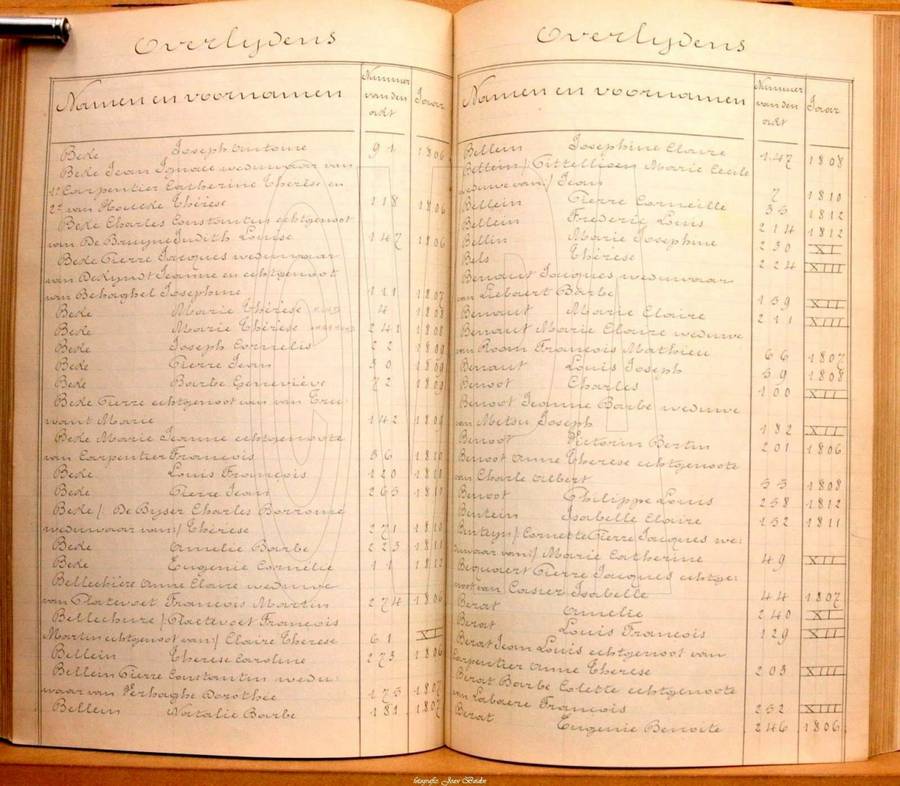 Overlydens
Namen en voornamen Nummer van den adt Jaar
Beke Joseph Antoine 91 1806
Beke Jean Ignace weduwaar van
1e Carpentier Catherine Thérèse en
2e van Houcke Thérèse 118 1806
Beke Charles Constantin echtgenoot
van De Bruyne Judith Louise 147 1806
Beke Pierre Jacques weduwaar
van DeKyndt Jeanne en echtgenoot
van Behaghel Josephine 111 1807
Beke Marie Thérèse 4 1808
Beke Marie Thérèse 241 1808
Beke Joseph Cornelis 22 1809
Beke Pierre Jean 30 1809
Beke Barbe Geneviève 72 1809
Beke Pierre echtgenoot van van
want Marie 142 1809
Beke Marie Jeanne echtgenoote
van Carpentier François 36 1810
Beke Louis François 120 1811
Beke Pierre Jean 265 1811
Beke / De Byser Charles Borromé
weduwaar van / Thérèse 271 1810
Beke Amelie Barbe 223 1811
Beke Eugenie Cornélie 11 1812
Bellechière Anne Claire weduwe
van Platevoet François Martin 274 1806
Bellechiere / Plaetevoet François
Martin echtgenoot van / Claire Therese 61 XI
Bellein Therese Caroline 273 1806
Bellein Pierre Constantin wedu-
waar van Verhaghe Dorothée 175 1807
Bellein Natalie Barbe 181 1807
Overlydens
Namen en voornamen Nummer van den adt Jaar
Bellein Josephine Claire 147 1808
Bellein / Cittellioen Marie Cecile
weduwe van / Jean 7 1810
Bellein Pierre Corneille 35 1812
Bellein Frederic Louis 214 1812
Bellin Marie Josephine 230 XI
Bels Thérèse 224 XIII
Benaut Jacques weduwaar
van Liebaert Barbe 139 XII
Benaut Marie Claire 211 XIII
Benaut Marie Claire weduwe
van Room François Mathieu 66 1807
Benaut Louis Joseph 59 1808
Benoot Charles 100 XII
Benoot Jeanne Barbe weduwe
van Metsu Joseph 182 XII
Benoot Victorin Bertin 201 1806
Benoot Anne Therese echtgenoote
van Charle Albert 53 1808
Benoot Philippe Louis 258 1812
Bentein Isabelle Claire 152 1811
Benteyn / Cornette Pierre Jacques we:
duwaar van / Marie Catherine 49 XII
Bequaert Pierre Jacques echtge:
noot van Casier Isabelle 44 1807
Berat Amelie 240 XI
Berat Louis François 129 XII
Berat Jean Louis echtgenoot van
Carpentier Anne Therese 203 XIII
Berat Barbe Colette echtgenoote
van Labaere François 252 XIII
Berat Eugenie Benoite 246 1806
fotografie: Joav Balden